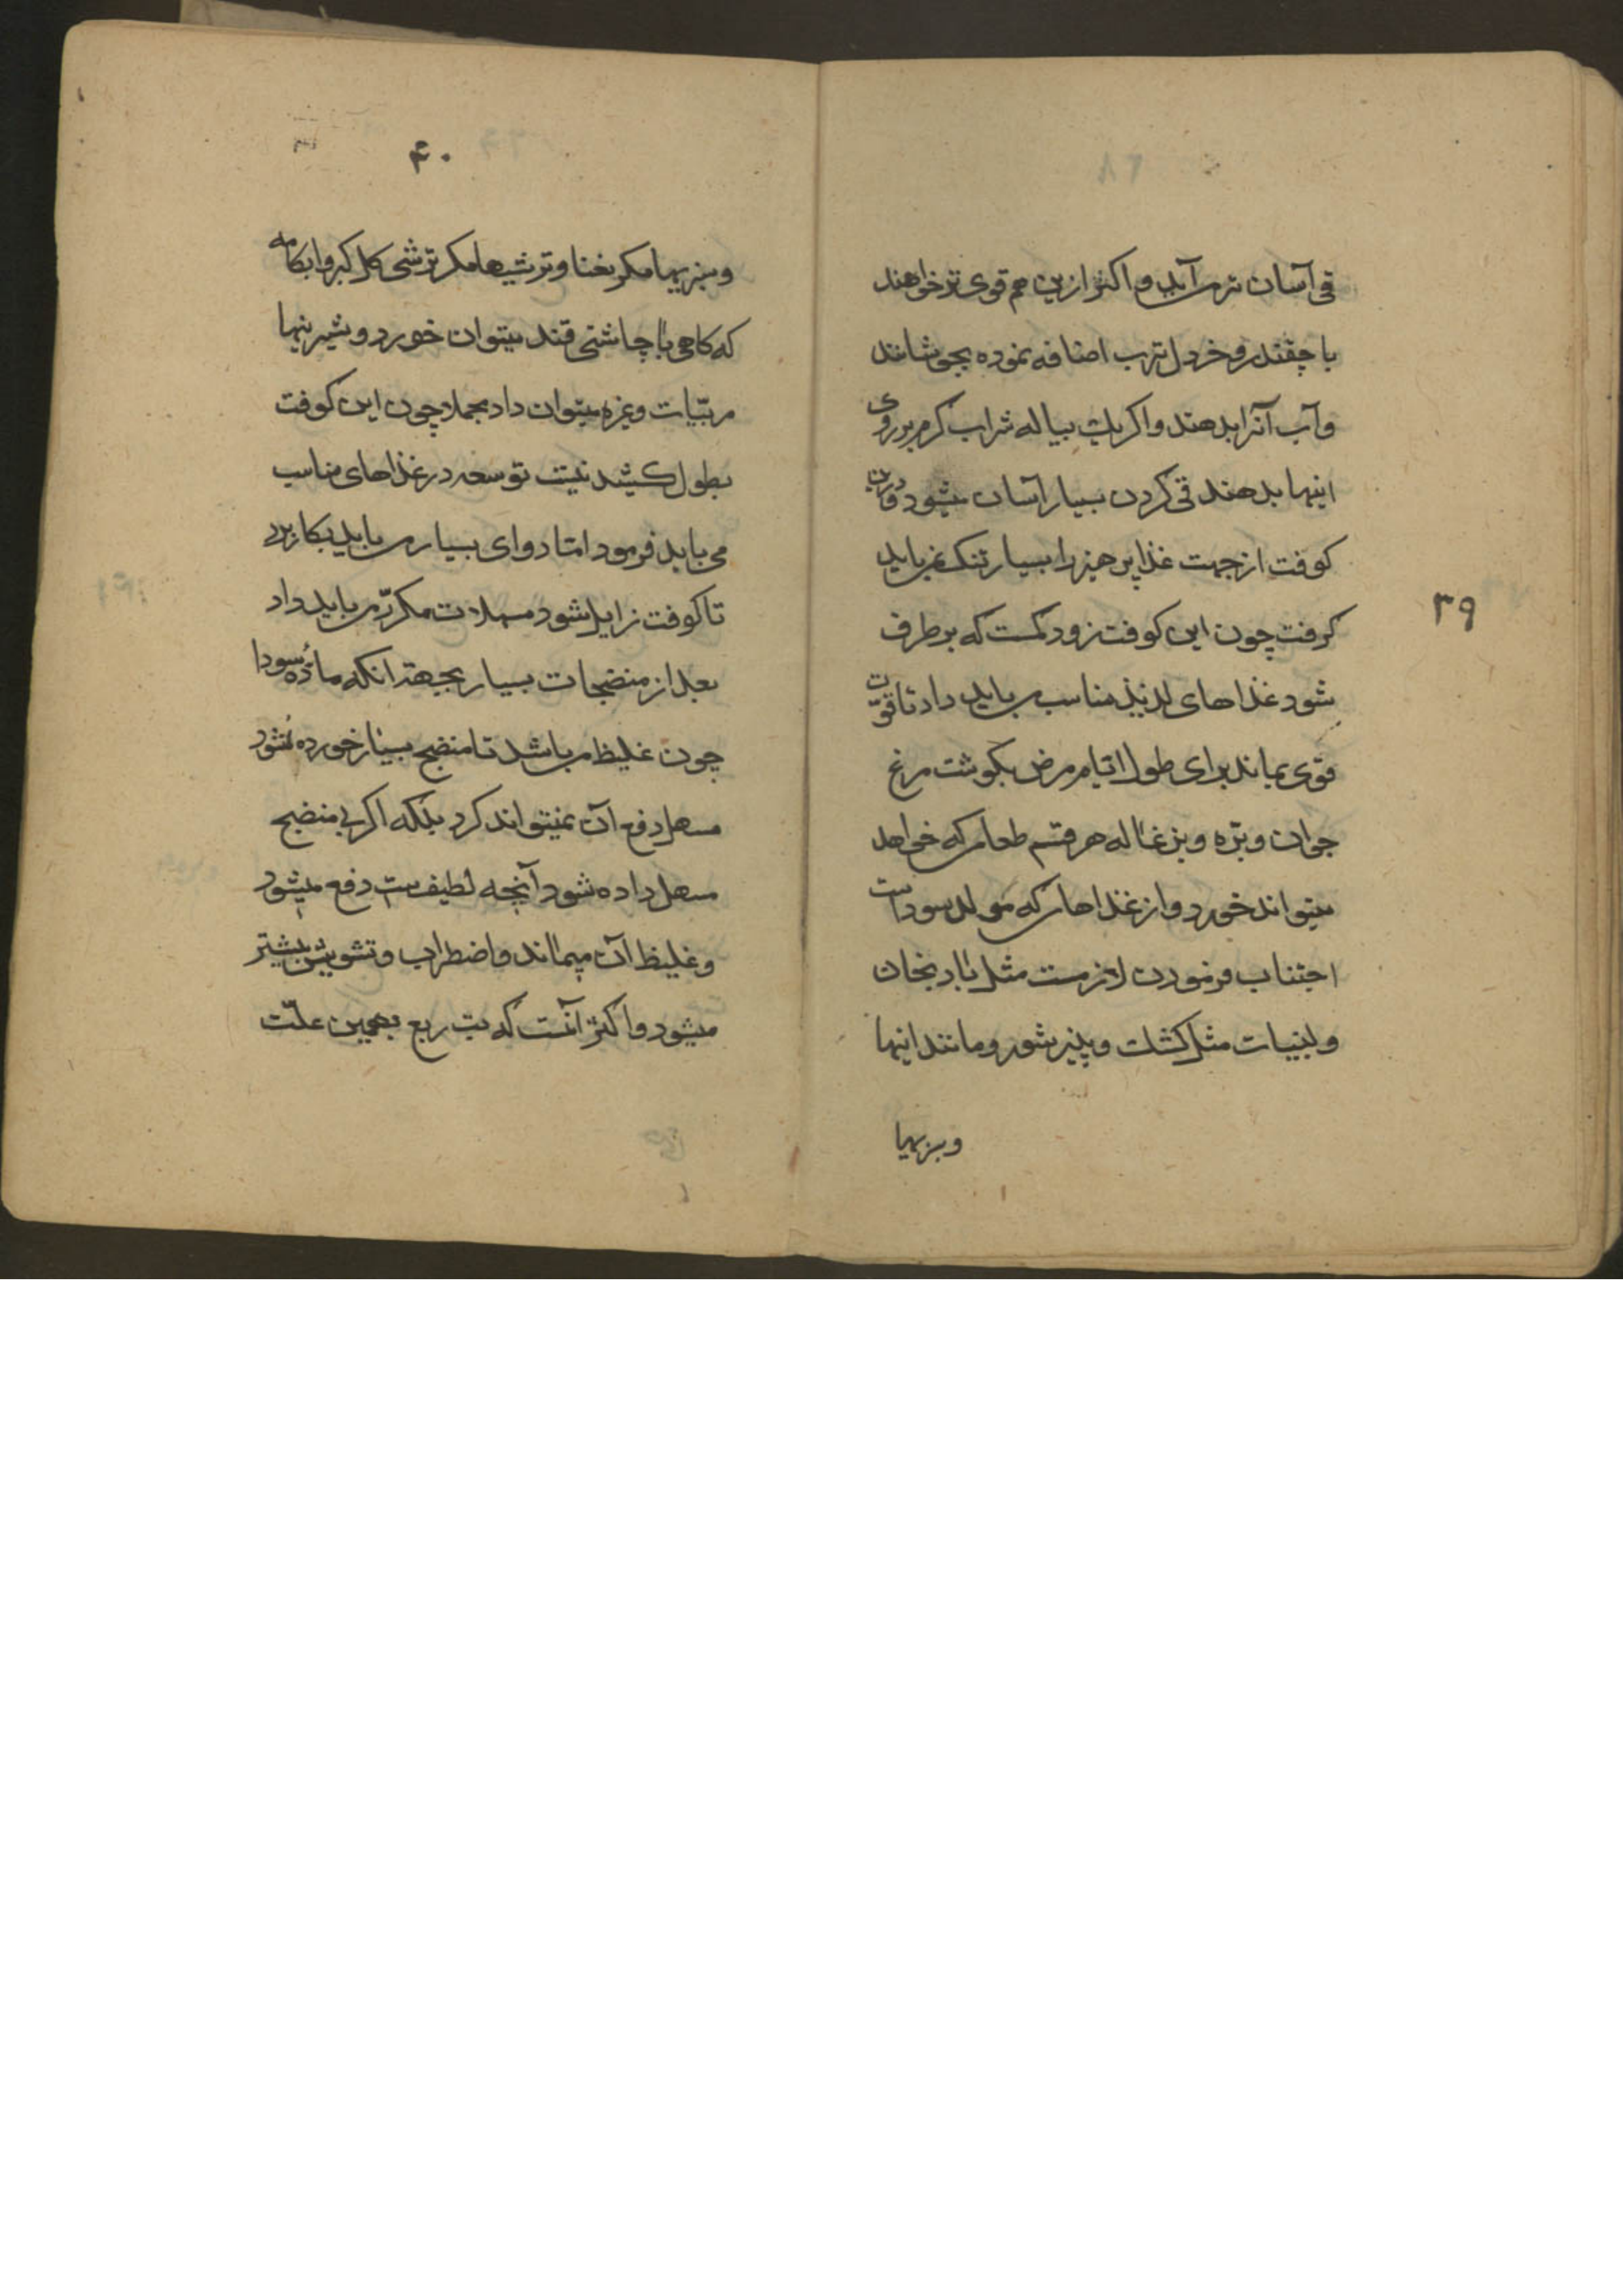 ۳۹
قی آسان ترمی آید و اکثر ازین هم قوی تر خواهند
با چقندر و خردل ترب اضافه نموده بجوشانند
و آب آنرا بدهند و اکر یک پیاله شراب کرم بر روی
اینها بدهند قی کردن بسیار آسان میشود و درین
کوفت از جهت غذا پرهیز را بسیار تنک نمی باید
کرفت چون این کوفت زود کمست که بر طرف
شود غذاهای لذیذ مناسب می باید داد تا قوّت
قوی بماند برای طول ایّام مرض بکوشت مرغ
جوان و برّه و بزغاله هر قسم طعامی که خواهد
میتواند خورد و از غذاهای که مولد سوداست
اجتناب فرمودن لازمست مثل بادنجان
و لبنیات مثل کشک و پنیر شور و مانند اینها
وسبزیها
۴۰
وسبزیها مکر نعنا و ترشیها مکر ترشی کل کبر و ابکامه
که کاهی با چاشنی قند میتوان خورد و شیرینیها
مربّیات و غیره میتوان داد مجملا چون این کوفت
بطول کشیدنیست توسعه در غذاهای مناسب
می باید فرمود امّا دوای بسیار می باید بکار برد
تا کوفت زایل شود مسهلات مکرّر می باید داد
بعد از منضجات بسیار بجهة انکه مادّه سودا
چون غلیظ می باشد تا منضج بسیار خورده نشود
مسهل دفع آن نمیتواند کرد بلکه اکر بی منضج
مسهل داده شود آنچه لطیف ست دفع میشود
و غلیظ آن میماند و اضطراب و تشویش بیشتر
میشود و اکثر آنست که تب ربع بهمین علّت